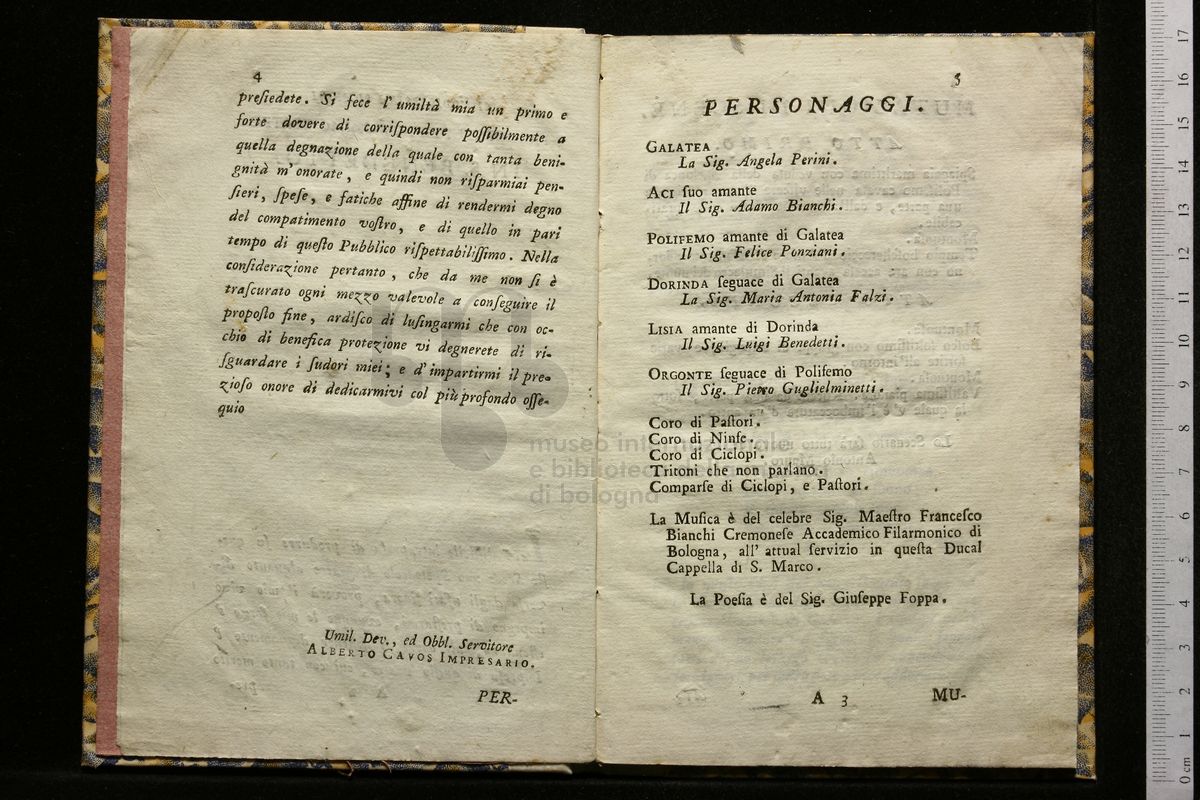 4
preſiedete. Si fece l'umiltà mia un primo e
forte dovere di corriſpondere poſſibilmente a
quella degnazione della quale con tanta beni-
gnità m'onorate, e quindi non riſparmiai pen-
ſieri, ſpeſe, e fatiche affine di rendermi degno
del compatimento voſtro, e di quello in pari
tempo di queſto Pubblico riſpettabiliſſimo. Nella
conſiderazione pertanto, che da me non ſi è
traſcurato ogni mezzo valevole a conſeguire il
propoſto fine, ardiſco di luſingarmi che con oc-
chio di benefica protezione vi degnerete di ri-
ſguardare i ſudori miei; e d'impartirmi il pre-
zioſo onore di dedicarmivi col più profondo oſſe-
quio
Umil. Dev., ed Obbl. Servitore
ALBERTO CAVOS IMPRESARIO.
PER-
5
PERSONAGGI.
GALATEA
La Sig. Angela Perini.
ACI ſuo amante
Il Sig. Adamo Bianchi.
POLIFEMO amante di Galatea
Il Sig. Felice Ponziani.
DORINDA ſeguace di Galatea
La Sig. Maria Antonia Falzi.
LISIA amante di Dorinda
Il Sig. Luigi Benedetti.
ORGONTE ſeguace di Polifemo
Il Sig. Pietro Guglielminetti.
Coro di Paſtori.
Coro di Ninfe.
Coro di Ciclopi.
Tritoni che non parlano.
Comparſe di Ciclopi, e Paſtori.
La Muſica è del celebre Sig. Maeſtro Franceſco
Bianchi Cremoneſe Accademico Filarmonico di
Bologna, all' attual ſervizio in queſta Ducal
Cappella di S. Marco.
La Poeſia è del Sig. Giuſeppe Foppa.
A 3
MU-
museo internazionale
e biblioteca
di bologna
0 cm 1 2 3 4 5 6 7 8 9 10 11 12 13 14 15 16 17